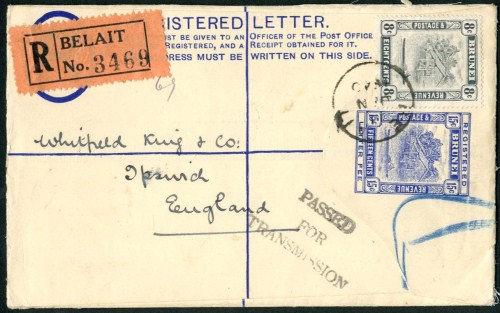 REGISTERED LETTER.
MUST BE GIVEN TO AN OFFICER OF THE POST OFFICE
REGISTERED, AND A RECEIPT OBTAINED FOR IT.
ADDRESS MUST BE WRITTEN ON THIS SIDE.
R
BELAIT
No. 3469
8c POSTAGE & 8c
BRUNEI
EIGHT CENTS
8c REVENUE 8c
15c POSTAGE & 15c
REGISTERED
BRUNEI
FIFTEEN CENTS
15c REVENUE 15c
Whitfield King & Co:
Ipswich
England
PASSED
FOR
TRANSMISSION